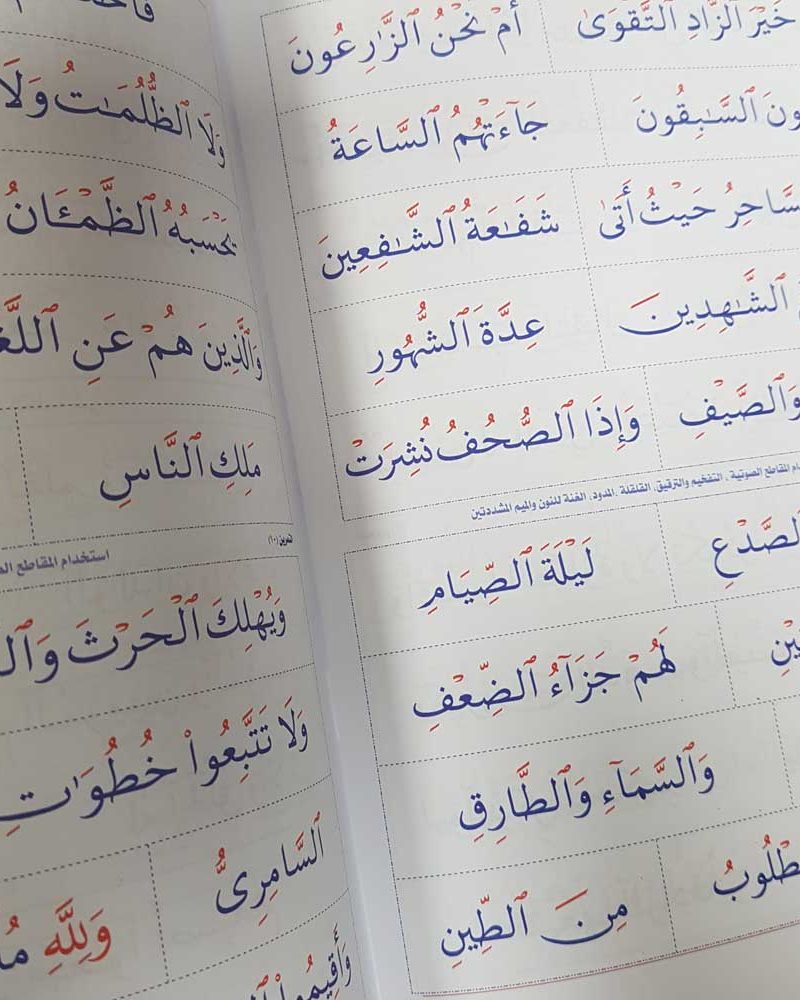 خَيْرَ ٱلزَّادِ ٱلتَّقْوَىٰ أَمْ نَحْنُ ٱلزَّٰرِعُونَ
ٱلسَّٰبِقُونَ جَآءَتْهُمُ ٱلسَّاعَةُ
حَيْثُ أَتَىٰ شَفَٰعَةُ ٱلشَّٰفِعِينَ
ٱلشَّٰهِدِينَ عِدَّةَ ٱلشُّهُورِ
وَٱلصَّيْفِ وَإِذَا ٱلصُّحُفُ نُشِرَتْ
المقاطع الصوتية ، التفخيم والترقيق، القلقلة ،المدود، الغنة للنون والميم المشددتين
ٱلصَّدْعِ لَيْلَةَ ٱلصِّيَامِ
لَهُمْ جَزَآءُ ٱلضِّعْفِ
وَٱلسَّمَآءِ وَٱلطَّارِقِ
مِنَ ٱلطِّينِ
وَلَا ٱلظُّلُمَٰتُ وَلَا
يَحْسَبُهُ ٱلظَّمْـَٔانُ
وَٱلَّذِينَ هُمْ عَنِ
مَلِكِ ٱلنَّاسِ
تمرين (١٠) استخدام المقاطع
وَيُهْلِكَ ٱلْحَرْثَ
وَلَا تَتَّبِعُوا۟ خُطُوَٰتِ
ٱلسَّامِرِىُّ
وَلِلَّهِ
وَأَقِيمُوا۟